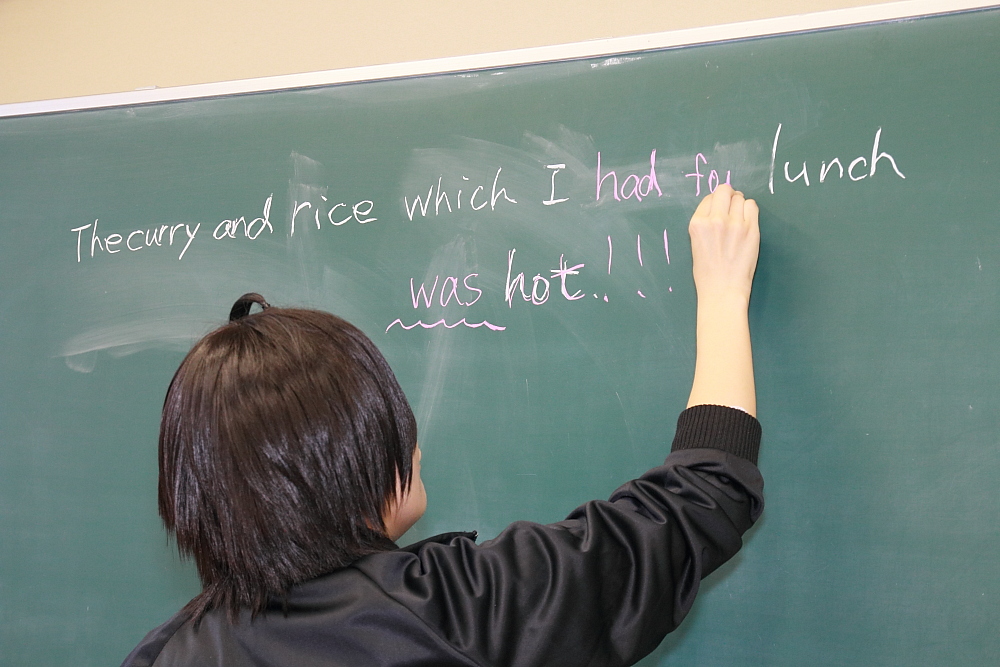 The curry and rice which I had for lunch
was hot..!!!